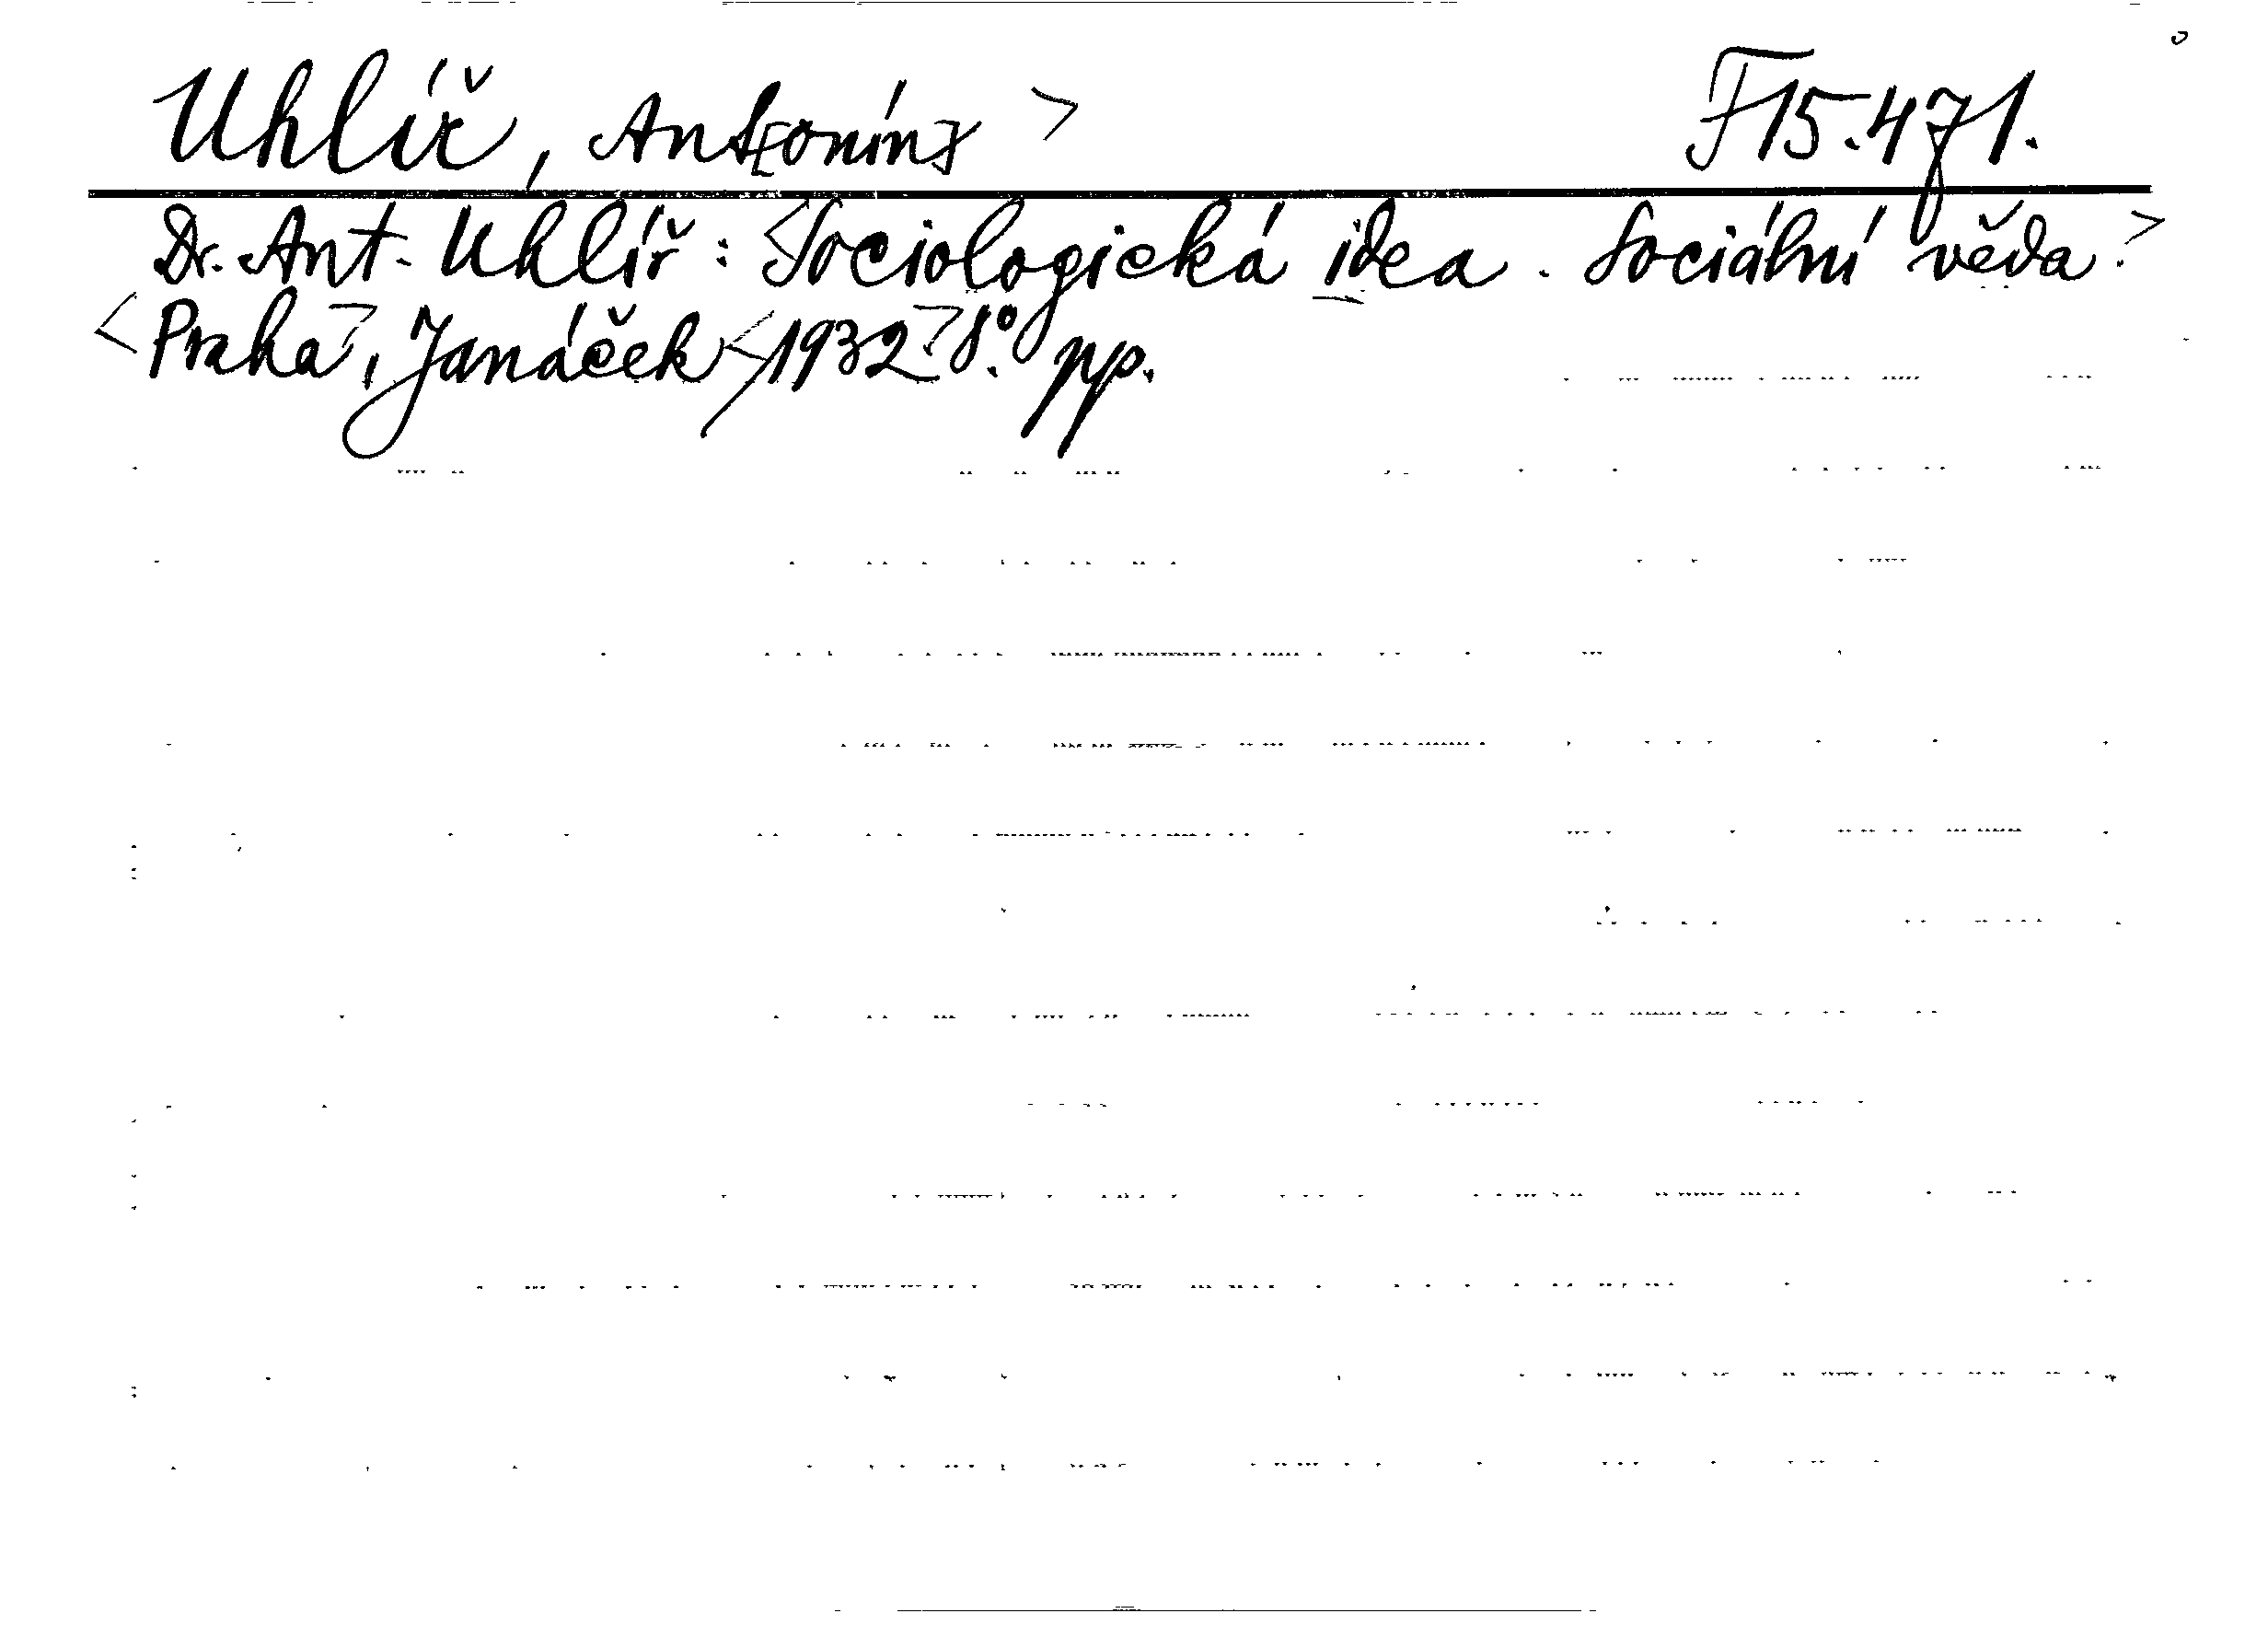 Uhlíř, Ant[onín] > F 15.471.
Dr. Ant. Uhlíř: <Sociologická idea. Sociální věda.>
<Praha>, Janáček <1932> 8.° pp.